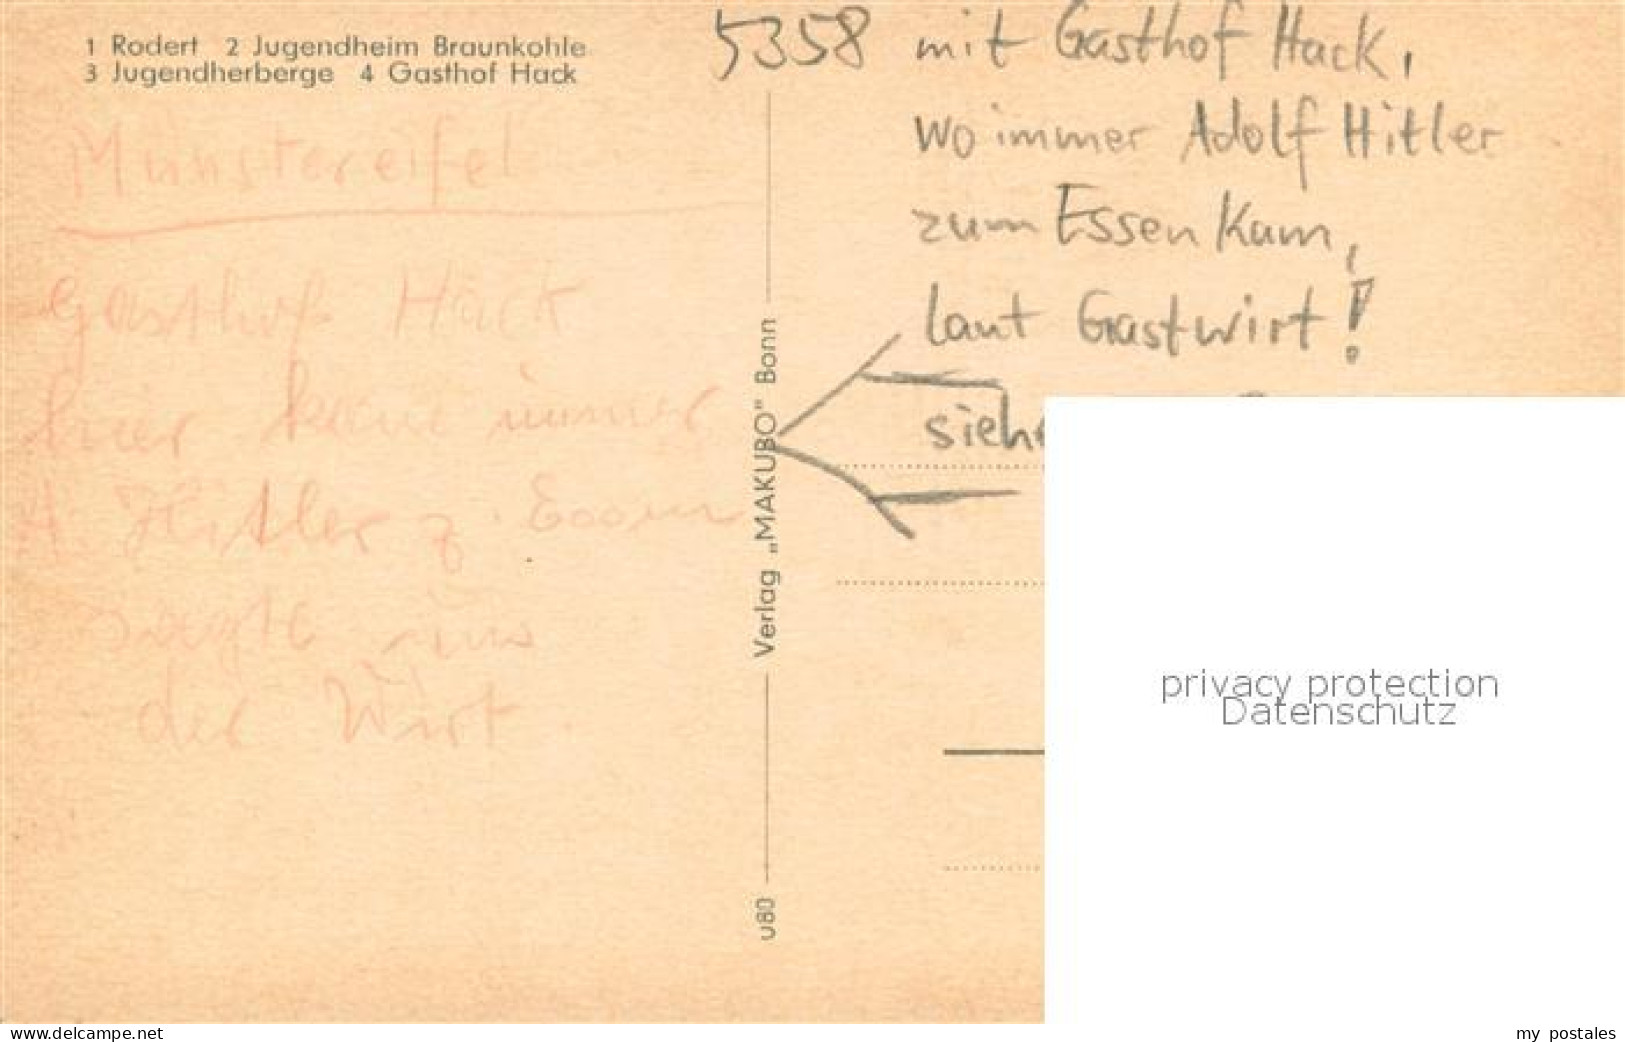 1 Rodert 2 Jugendheim Braunkohle
3 Jugendherberge 4 Gasthof Hack
Münstereifel
Gasthof Hack
hier kam immer
A. Hitler z. Essen
sagte uns
der Wirt.
Verlag „MAKUBO" Bonn
U80
5358 mit Gasthof Hack,
wo immer Adolf Hitler
zum Essen kam,
laut Gastwirt!
privacy protection
Datenschutz
www.delcampe.net
my_postales